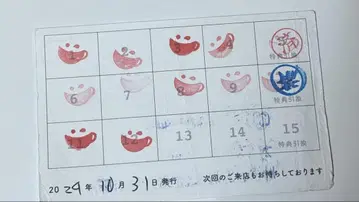 1 2 3 4 特典
6 7 8 9 特典引換
11 12 13 14 15
特典引換
2024年10月31日発行 次回のご来店もお待ちしております